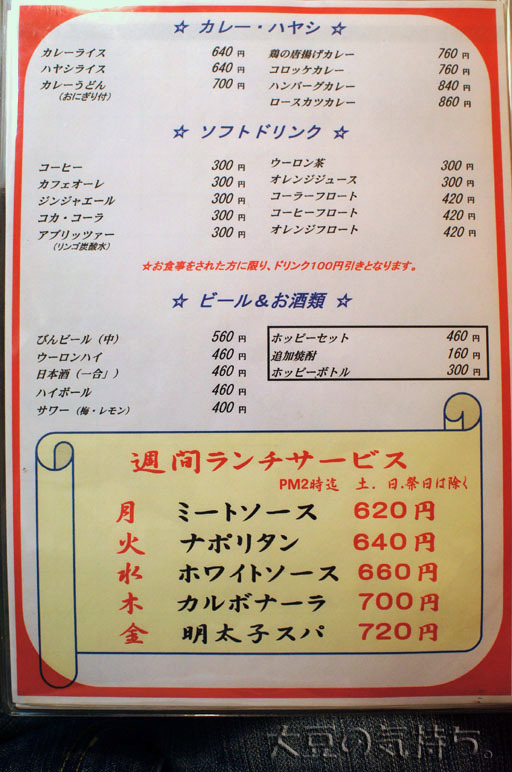 ☆ カレー・ハヤシ ☆
カレーライス 640 円
ハヤシライス 640 円
カレーうどん 700 円
(おにぎり付)
鶏の唐揚げカレー 760 円
コロッケカレー 760 円
ハンバーグカレー 840 円
ロースカツカレー 860 円
☆ ソフトドリンク ☆
コーヒー 300 円
カフェオーレ 300 円
ジンジャエール 300 円
コカ・コーラ 300 円
アプリッツァー 300 円
(リンゴ炭酸水)
ウーロン茶 300 円
オレンジジュース 300 円
コーラーフロート 420 円
コーヒーフロート 420 円
オレンジフロート 420 円
☆お食事をされた方に限り、ドリンク100円引きとなります。
☆ ビール&お酒類 ☆
びんビール（中） 560 円
ウーロンハイ 460 円
日本酒（一合」） 460 円
ハイボール 460 円
サワー（梅・レモン） 400 円
ホッピーセット 460 円
追加焼酎 160 円
ホッピーボトル 300 円
週間ランチサービス
PM2時迄 土．日.祭日は除く
月 ミートソース 620円
火 ナポリタン 640円
水 ホワイトソース 660円
木 カルボナーラ 700円
金 明太子スパ 720円
大豆の気持ち。